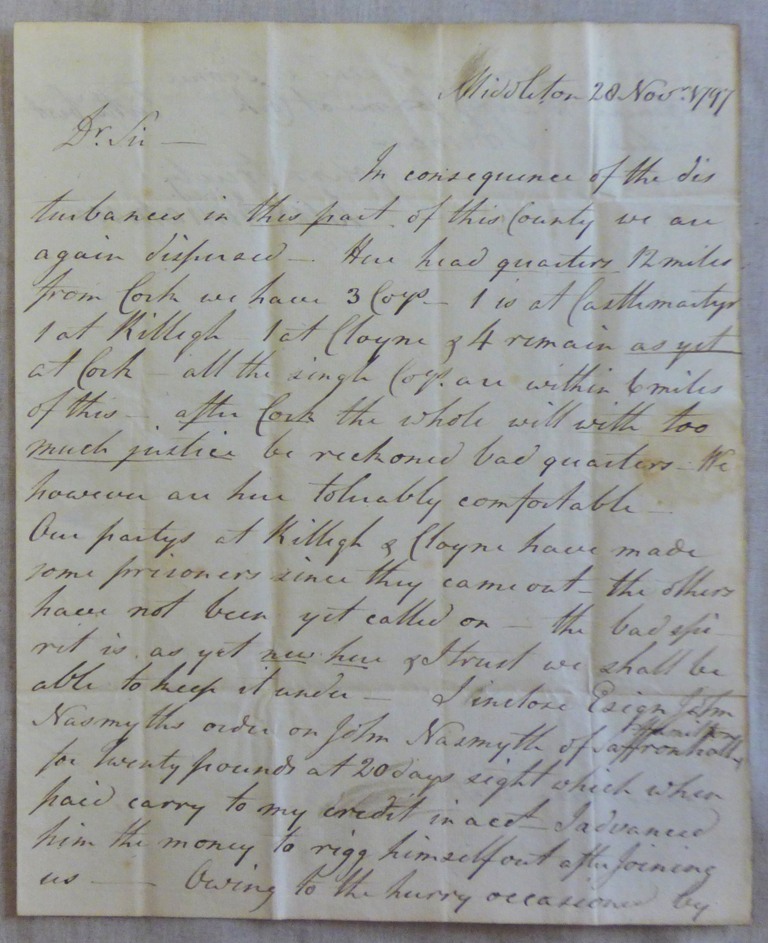 Middleton 28 Novr. 1797
Dr. Sir —
In consequence of the dis
turbances in this part of this County we are
again dispersed — Here head quarters 12 miles
from Cork we have 3 Coys — 1 is at Castlemartyr
1 at Killegh 1 at Cloyne & 4 remain as yet
at Cork — all the single Coys. are within 6 miles
of this — after Cork the whole will with too
much justice be reckoned bad quarters — We
however are here tolerably comfortable —
Our partys at Killegh & Cloyne have made
some prisoners since they came out — the others
have not been yet called on — the bad spi —
rit is as yet new here & I trust we shall be
able to keep it under — I inclose Ensign John
Nasmyths order on John Nasmyth of Saffronhall
Hamilton
for Twenty pounds at 20 days sight which when
paid carry to my credit in acct — I advanced
him the money to rigg himself out after joining
us — Owing to the hurry occasioned by